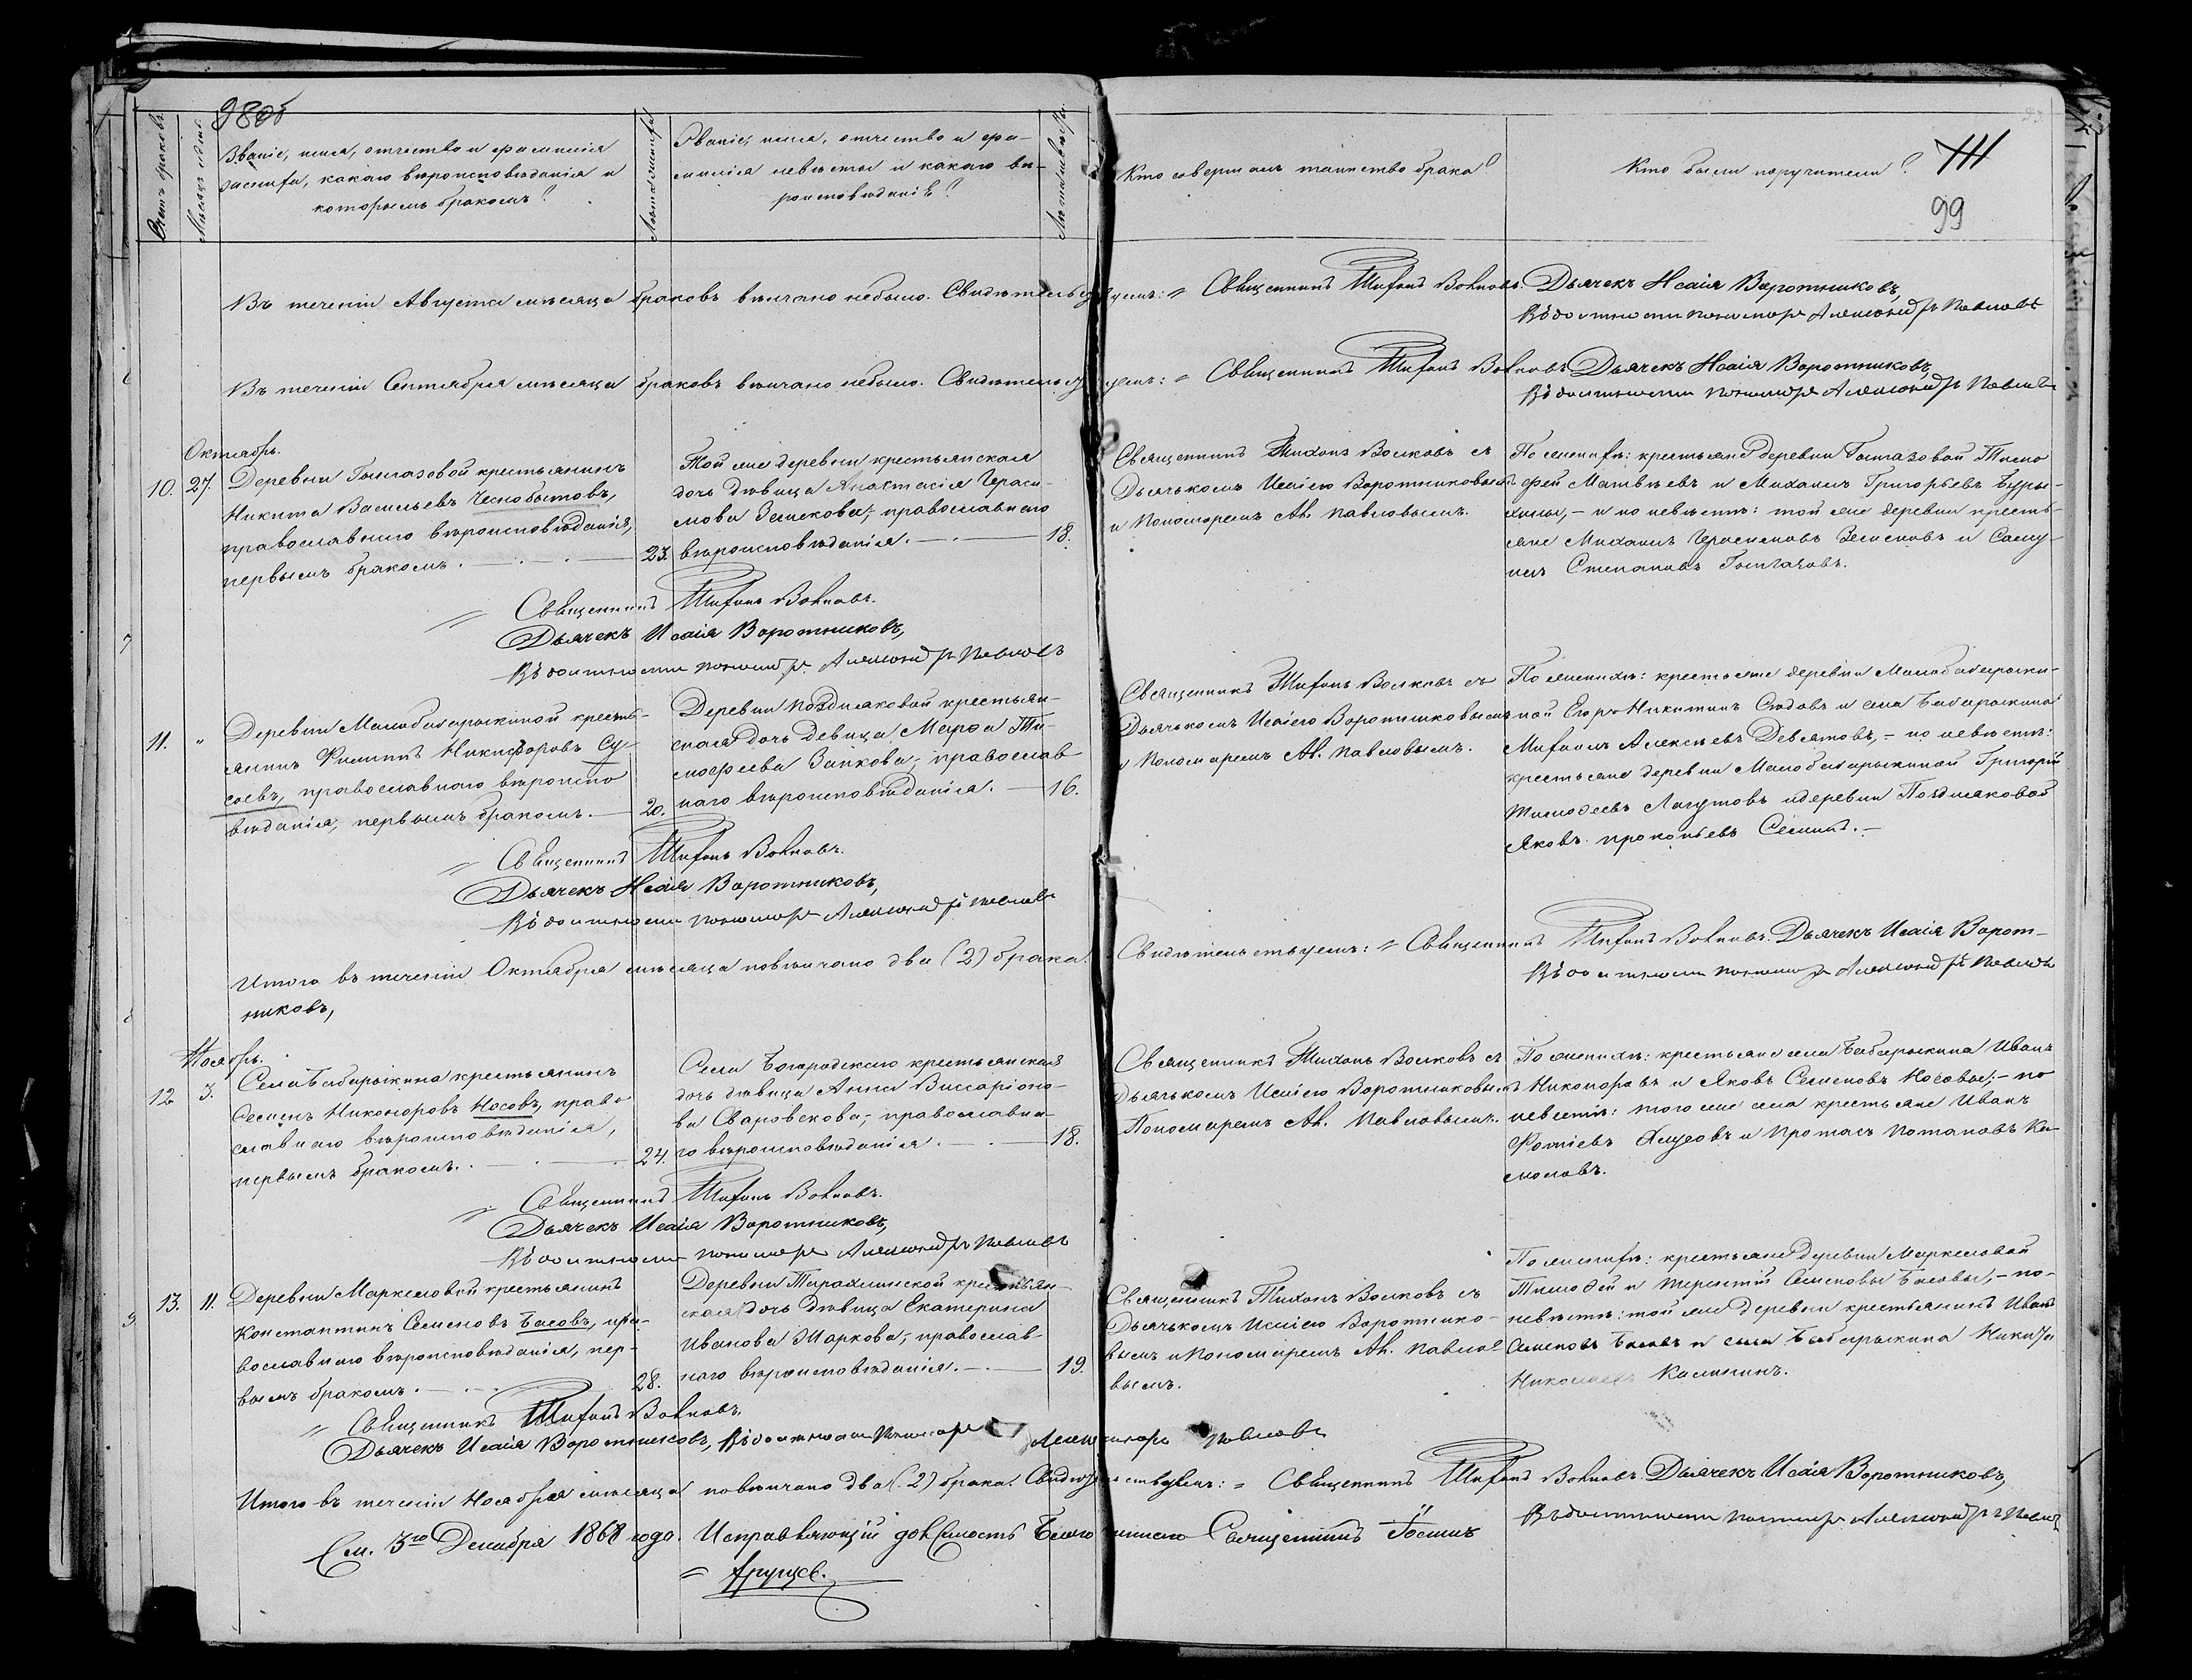 98об
Счетъ браковъ.
Мѣсяцъ и день.
Званіе, имя, отчество и фамилія
жениха, какого вѣроисповѣданія и
которымъ бракомъ?
Лѣта жениха
Званіе, имя, отчество и фа-
милія невѣсты и какого вѣ-
роисповѣданія?
Лѣта невѣсты.
Кто совершалъ таинство брака?
Кто были поручители?
99
Въ теченіи Августа мѣсяца браковъ вѣнчано небыло. Свидѣтельствуемъ: = Священникъ Тихонъ Волковъ. Дьячекъ Исаія Воротниковъ,
Въ должности пономаря Александръ Павловъ
Въ теченіи Сентября мѣсяца браковъ вѣнчано небыло. Свидѣтельствуемъ: = Священникъ Тихонъ Волковъ Дьячекъ Исаія Воротниковъ,
Въ должности пономаря Александръ Павловъ
Октябрь.
10. 27. Деревни крестьянинъ
Никита Васильевъ Чеснобытовъ,
православнаго вѣроисповѣданія,
первымъ бракомъ. 23.
Той же деревни крестьянская
дочь дѣвица Анастасія Гераси-
мова Земскова; православнаго
вѣроисповѣданія. 18.
Священникъ Тихонъ Волковъ съ
Дьячькомъ Исаіею Воротниковымъ
и Пономаремъ Ал. Павловымъ.
По женихѣ: крестьяне деревни Тимо
фей Матвѣевъ и Михаилъ Григорьевъ Буры-
хины, - и по невѣстѣ: той же деревни кресть-
яне Михаилъ Герасимовъ и Саму-
илъ Степановъ
= Священникъ Тихонъ Волковъ.
Дьячекъ Исаія Воротниковъ,
Въ должности пономаря Александръ Павловъ
11. " Деревни Малобабарыкиной кресть-
янинъ Филиппъ Никифоровъ Су-
соевъ, православнаго вѣроиспо
вѣданія, первымъ бракомъ. 20.
Деревни Поздняковой крестьян-
ская дочь Дѣвица Марѳа Ти-
моѳеева Заикова; православ
наго вѣроисповѣданія. 16.
Священникъ Тихонъ Волковъ съ
Дьячькомъ Исаіею Воротниковымъ
и Пономаремъ Ал. Павловымъ.
По женихѣ: крестьяне деревни Малобабарыки-
ной Егоръ Никитинъ Сѣдовъ и села Бабарыкина
Михаилъ Алексѣевъ Девятовъ, - по невѣстѣ:
крестьяне деревни Малобабарыкиной Григорій
Тимоѳеевъ Лагутовъ и деревни Поздняковой
Яковъ Прокопьевъ Семинъ. -
= Священникъ Тихонъ Волковъ.
Дьячекъ Исаія Воротниковъ,
Въ должности пономаря Александръ Павловъ
Итого въ теченіи Октября мѣсяца повѣнчано два (2) брака. Свидѣтельствуемъ: = Священникъ Тихонъ Волковъ. Дьячекъ Исаія Ворот-
никовъ,
Въ должности пономаря Александръ Павловъ
Ноябрь.
12 3. Села Бабарыкина крестьянинъ
Семенъ Никаноровъ Носовъ, право
славнаго вѣроисповѣданія,
первымъ бракомъ. 24.
Села Богородскаго крестьянская
дочь дѣвица Анна Виссаріоно-
ва Сваровскова; православна-
го вѣроисповѣданія. 18.
Священникъ Тихонъ Волковъ съ
Дьячькомъ Исаіею Воротниковымъ
Пономаремъ Ал. Павловымъ.
По женихѣ: крестьяне села Бабарыкина Иванъ
Никоноровъ и Яковъ Семеновъ Носовы; - по
невѣстѣ: того же села крестьяне Иванъ
Фотіевъ и Протасъ Потаповъ Ка-
моловъ.
= Священникъ Тихонъ Волковъ.
Дьячекъ Исаія Воротниковъ,
Въ должности пономаря Александръ Павловъ
13. 11. Деревни Маркеловой крестьянинъ
Константинъ Семеновъ Басовъ, пра-
вославнаго вѣроисповѣданія, пер-
вымъ бракомъ. 28.
Деревни Тирахлинской крестьян-
ская дочь дѣвица Екатерина
Иванова Маркова; православ-
наго вѣроисповѣданія. 19.
Священникъ Тихонъ Волковъ съ
Дьячькомъ Исаіею Воротнико-
вымъ и Пономаремъ Ал. Павло-
вымъ.
По женихѣ: крестьяне деревни Маркеловой
Тимоѳей и Терентій Семеновы Басовы, - по-
невѣстѣ: той же деревни крестьянинъ Иванъ
Семеновъ Басовъ и села Бабарыкина Никита
Николаевъ Калининъ.
= Священникъ Тихонъ Волковъ.
Дьячекъ Исаія Воротниковъ, Въ должности пономаря Александръ Павловъ
Итого въ теченіи Ноября мѣсяца повѣнчано два (2) брака. Свидѣтельствуемъ: = Священникъ Тихонъ Волковъ. Дьячекъ Исаія Воротниковъ,
Въ должности пономаря Александръ Павловъ
См. 3го Декабря 1868 года. Исправляющій должность Благочиннаго Священникъ